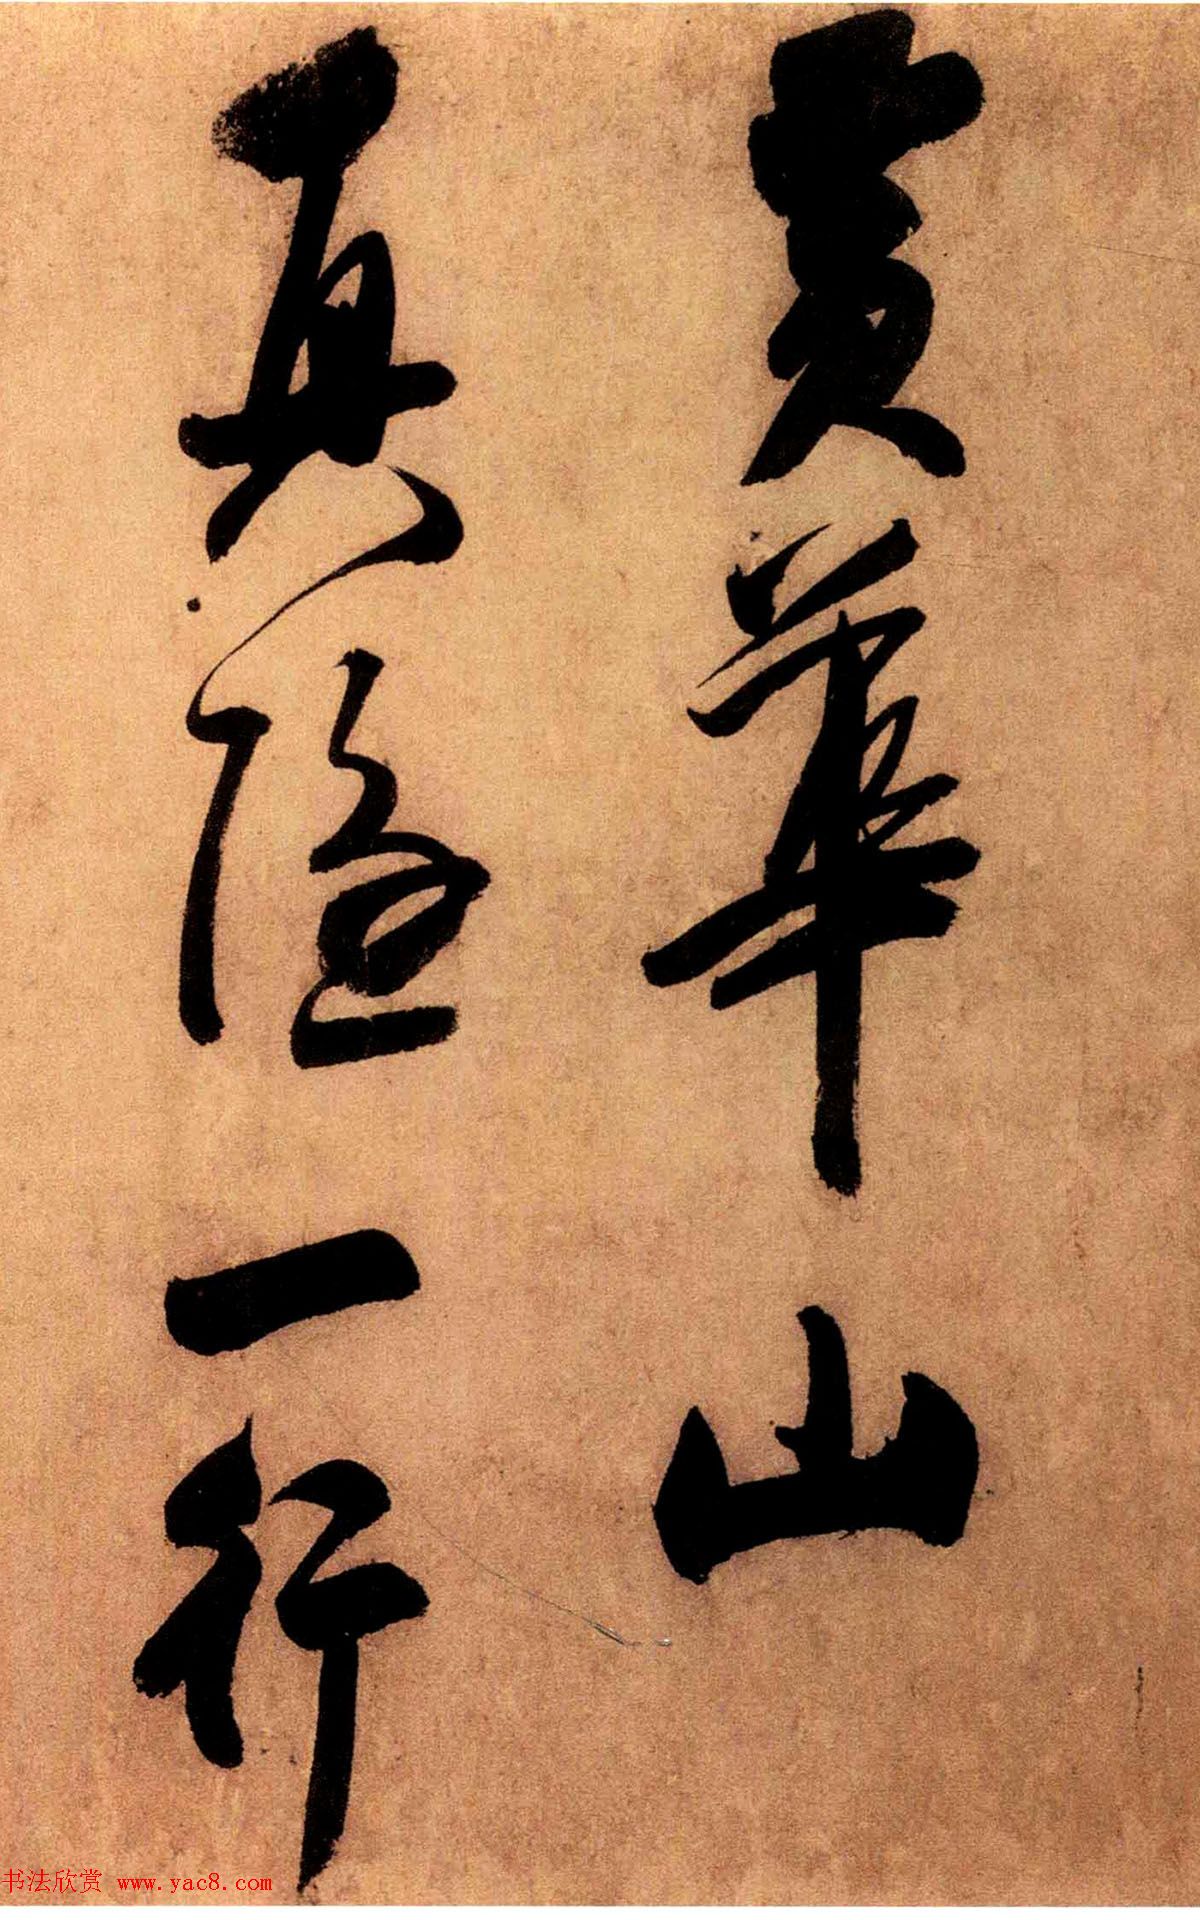 黄華山
真隐一行
书法欣赏 www.yac8.com